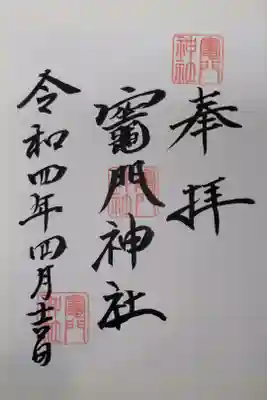 竈門
神社
奉拝
竈門神社
令和四年四月 日
竈門
神社
竈門
神社